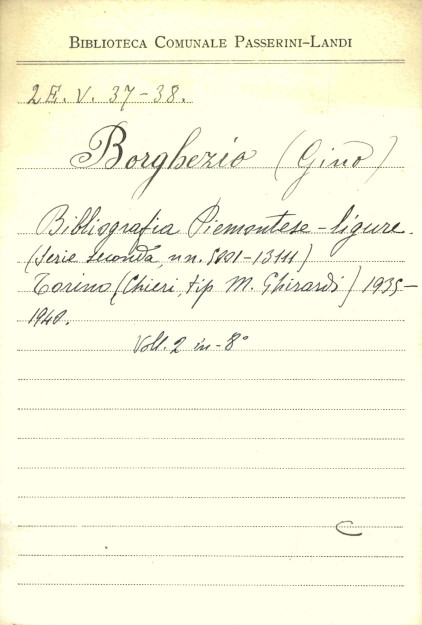 BIBLIOTECA COMUNALE PASSERINI-LANDI
2 E. V. 37-38.
Borghezio (Gino)
Bibliografia Piemontese-ligure.
(Serie seconda, nn. 5801-13111)
Torino (Chieri, tip M. Ghirardi) 1935-
1940.
Voll. 2 in-8°
C